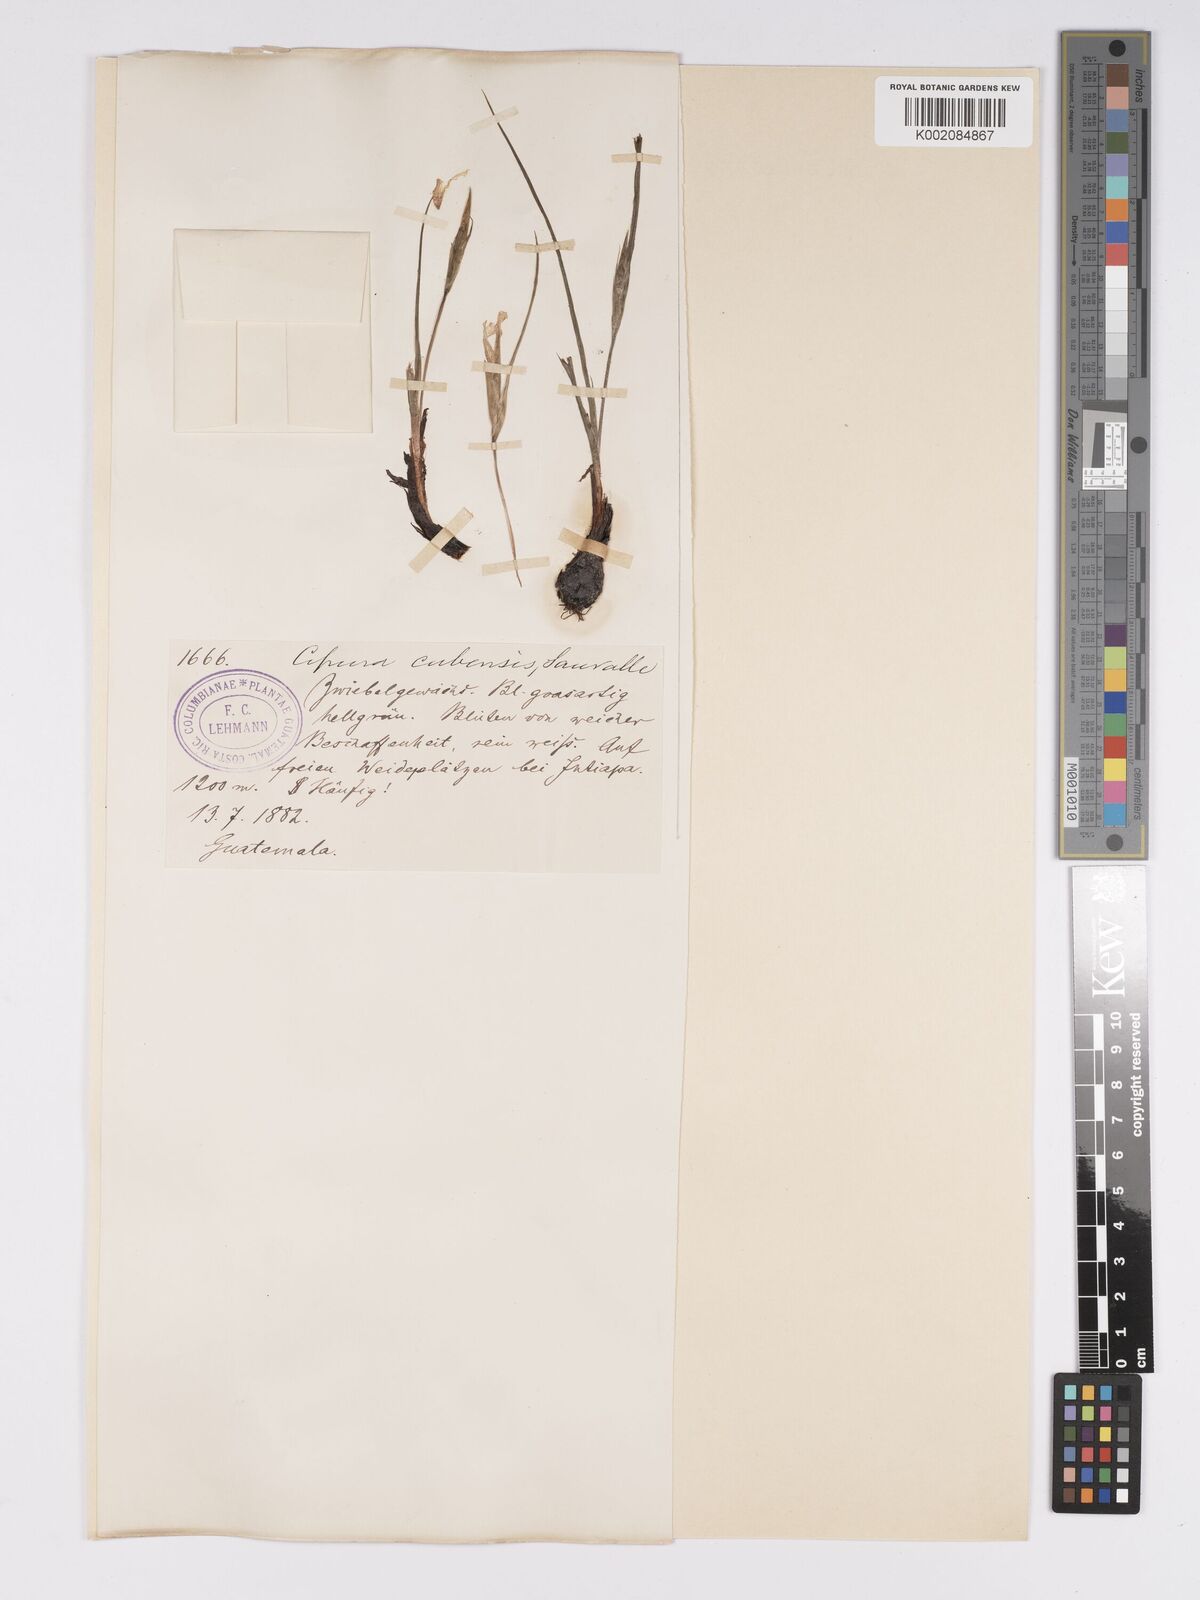 ROYAL BOTANIC GARDENS KEW
K002084867
1666. Cipura cubensis, Sauvalle
Zwiebelgewächs. Bl. grasartig
hellgrün. Blüten von weicher
Beschaffenheit, rein weiß. Auf
freien Weideplätzen bei Jutiapa.
1200 m. Häufig!
13. 7. 1882.
Guatemala.
COLUMBIANAE * PLANTAE GUATEMAL. COSTA RIC.
F. C.
LEHMANN
inches
Density
Don Williams
centimeters
M001010
Kew
copyright reserved
10
9
8
7
6
5
4
3
2
1
0
cm